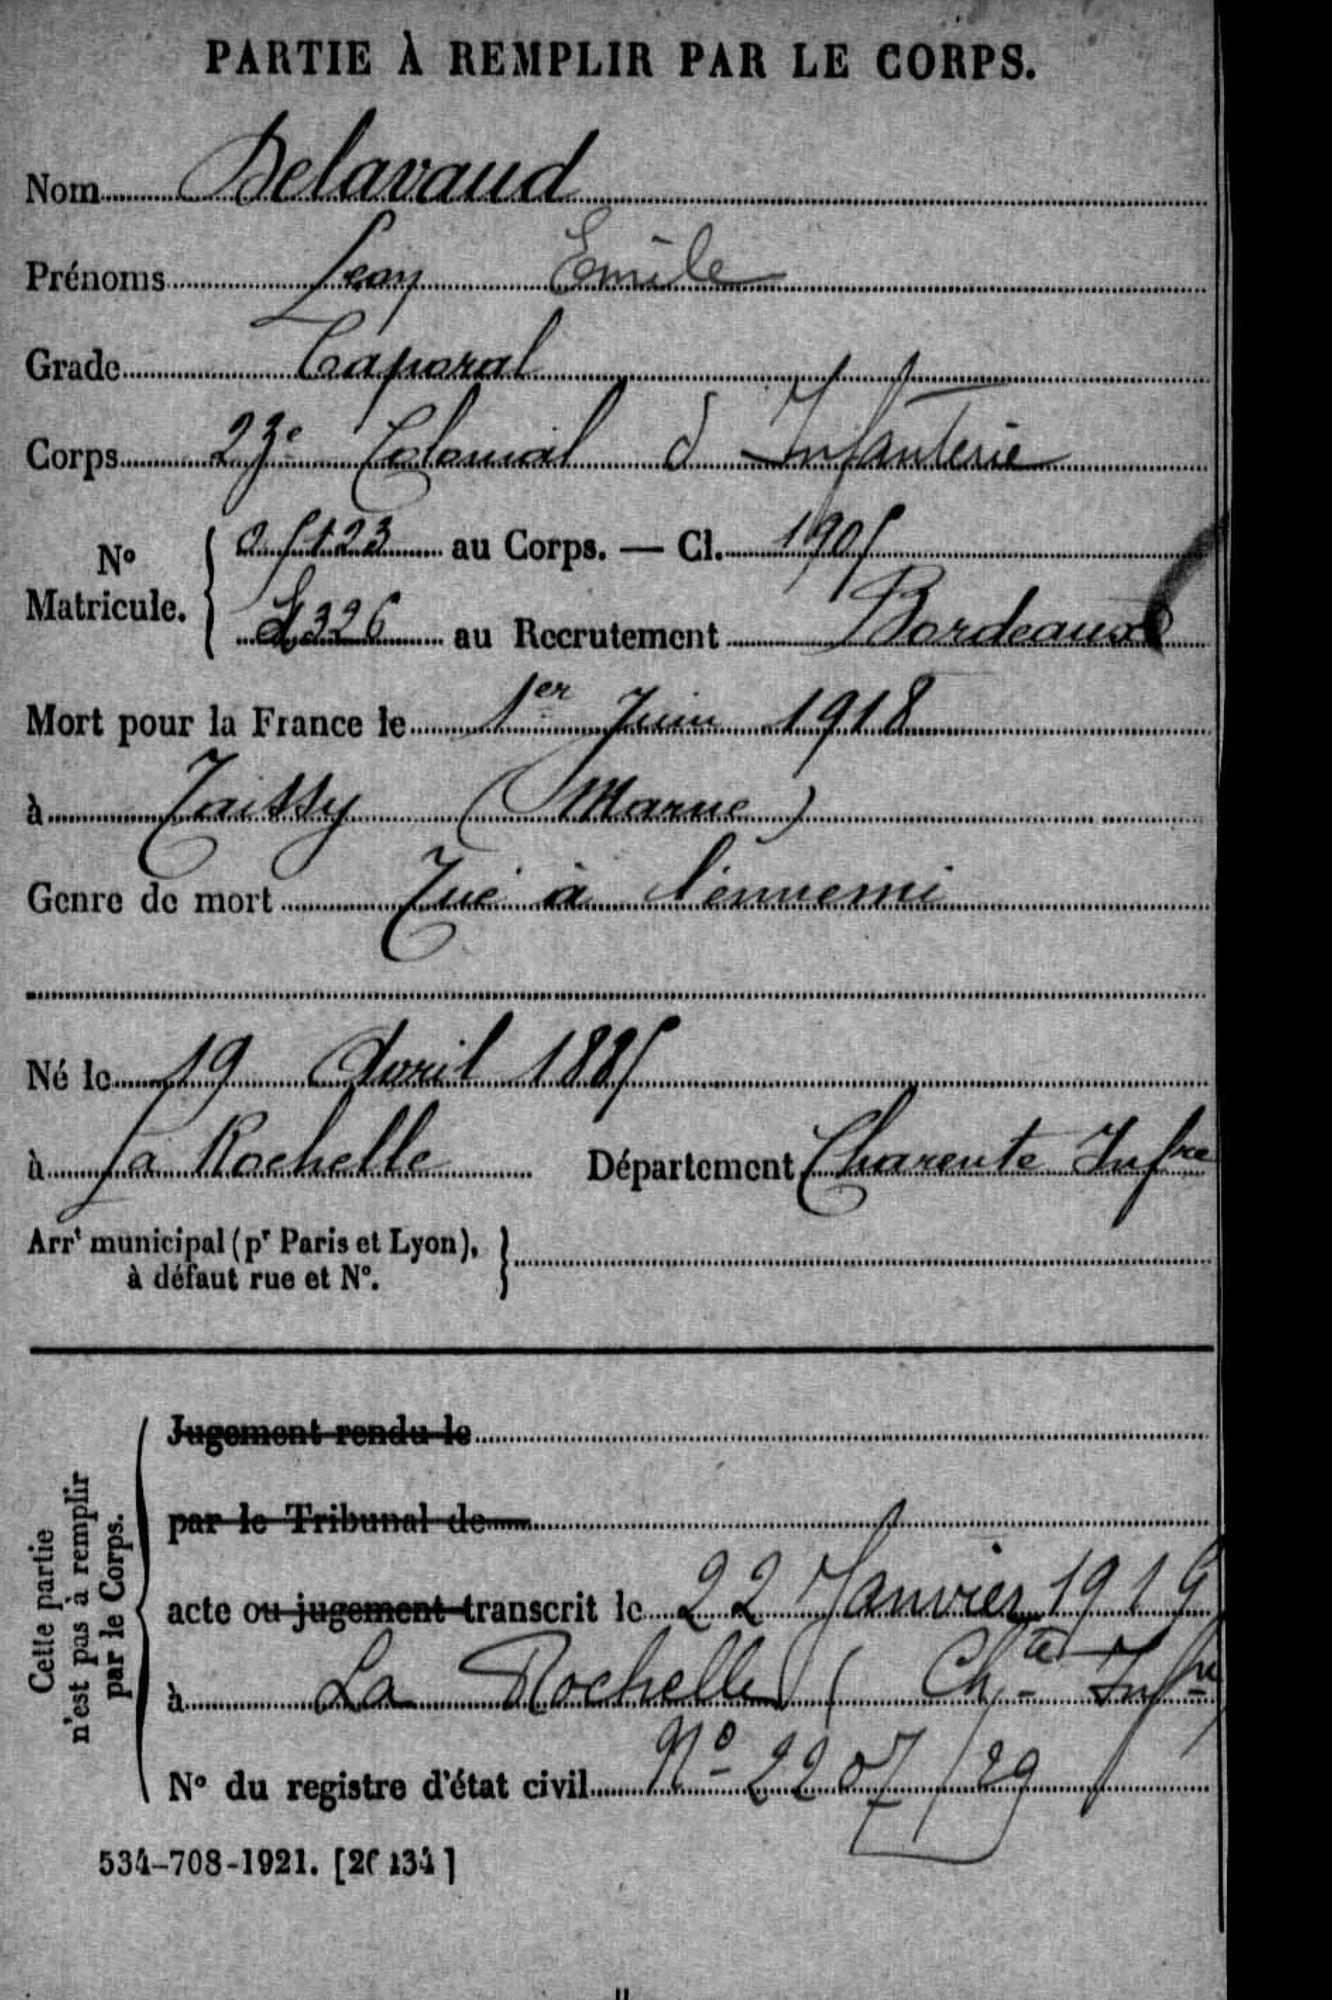 PARTIE À REMPLIR PAR LE CORPS.
Nom Delavaud
Prénoms Leon Emile
Grade Caporal
Corps 23e Colonial d Infanterie
No Matricule. { 05123 au Corps. — Cl. 1905
4326 au Recrutement Bordeaux
Mort pour la France le 1er Juin 1918
à Taissy (Marne)
Genre de mort Tué à l'ennemi
Né le 19 Avril 1885
à La Rochelle Département Charente Infre
Arrt municipal (pr Paris et Lyon), }
à défaut rue et No.
Cette partie
n'est pas à remplir
par le Corps.
Jugement rendu le
par le Tribunal de
acte ou jugement transcrit le 22 Janvier 1919
à La Rochelle (Chte Infre
No du registre d'état civil No 2207/29
534-708-1921. [26134]